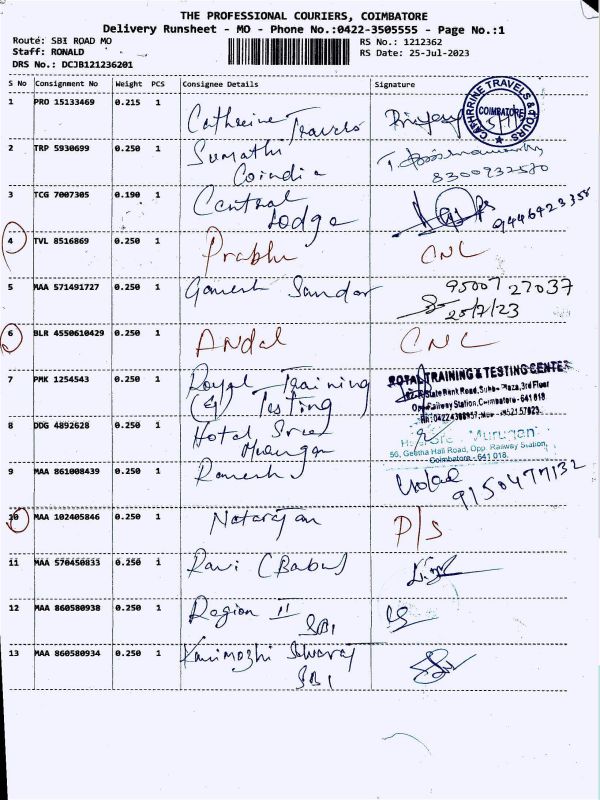 THE PROFESSIONAL COURIERS, COIMBATORE
Delivery Runsheet - MO - Phone No.:0422-3505555 - Page No.:1
Route: SBI ROAD MO
RS No.: 1212362
Staff: RONALD
RS Date: 25-Jul-2023
DRS No.: DCJB121236201
S No Consignment No Weight PCS Consignee Details Signature
1 PRO 15133469 0.215 1 Catherine Travels
CATHRRINE TRAVELS & TOURS
COIMBATORE
2 TRP 5930699 0.250 1 Sumathi
Coindia
8300932580
3 TCG 7007305 0.190 1 Central
Lodge
9446423358
4 TVL 8516869 0.250 1 Prabhu CNL
5 MAA 571491727 0.250 1 Ganesh Sundar 95007 27037
25/7/23
6 BLR 4550610429 0.250 1 Andal CNL
7 PMK 1254543 0.250 1 Royal Training
(&) Testing
ROYAL TRAINING & TESTING CENTER
State Bank Road, Suba Plaza, 3rd Floor
Opp. Railway Station, Coimbatore - 641 018.
8 DDG 4892628 0.250 1 Hotel Sree
Murugan
Hotel Sree Murugan
50, Geetha Hall Road, Opp. Railway Station,
Coimbatore - 641 018.
9 MAA 861008439 0.250 1 Ramesh
9150477132
10 MAA 102405846 0.250 1 Natarajan P/S
11 MAA 570450833 0.250 1 Ravi (Babu)
12 MAA 860580938 0.250 1 Region II
SBI
13 MAA 860580934 0.250 1 Kanimozhi
SBI